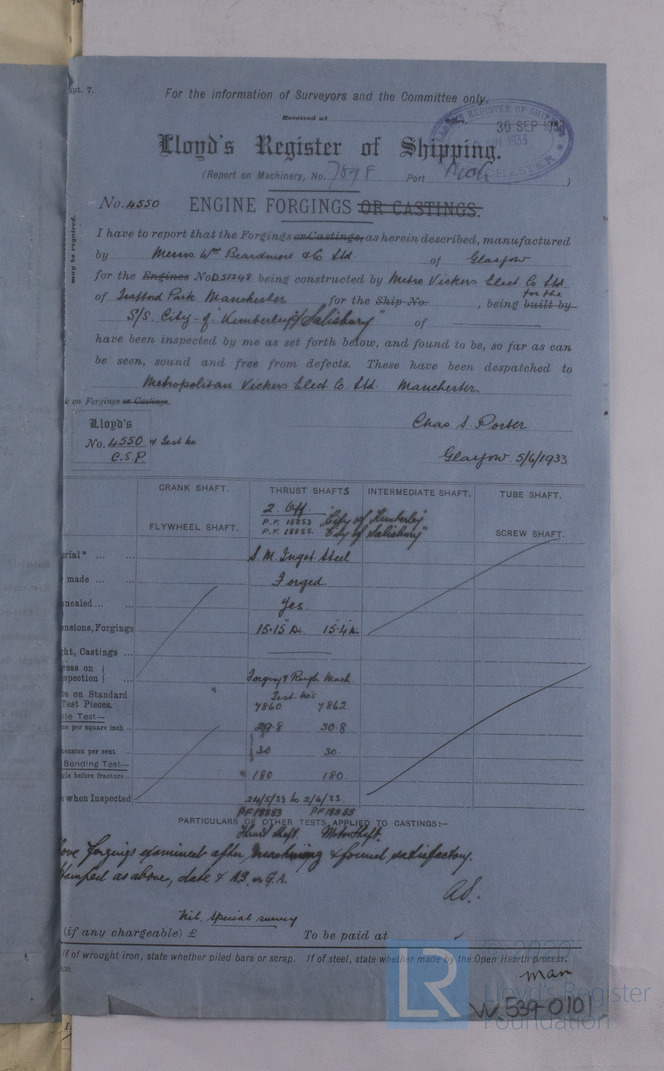 pt. 7.
For the information of Surveyors and the Committee only.
Received at Office,
30 SEP 1933
Lloyd's Register of Shipping.
(Report on Machinery, No. 7898 Port )
No. 4550 ENGINE FORGINGS OR CASTINGS.
may be required.
I have to report that the Forgings or Castings, as herein described, manufactured
by Messrs Wm Beardmore & Co Ltd of Glasgow
for the Engines No D51248 being constructed by Metro Vickers Elect. Co Ltd.
of Trafford Park Manchester for the Ship No. , being built by for the
S/S. City of "Kimberley/Salisbury" of
have been inspected by me as set forth below, and found to be, so far as can
be seen, sound and free from defects. These have been despatched to
Metropolitan Vickers Elect. Co. Ltd. Manchester
on Forgings or Castings.
Lloyd's
No. 4550 & Test No
C.S.P.
Chas S Porter
Glasgow 5/6/1933
CRANK SHAFT. THRUST SHAFTS INTERMEDIATE SHAFT. TUBE SHAFT.
2. Off.
FLYWHEEL SHAFT. P.F. 18853 "City of Kimberley"
P.F. 18855. "City of Salisbury" SCREW SHAFT.
erial * S.M. Ingot Steel
made Forged
nnealed Yes.
ensions, Forgings 15.15" D. 15.4" D.
ght, Castings
ress on
spection Forging & Rough Mach
s on Standard Test No's
Test Pieces. 7860 7862
ile Test—
ns per square inch 29.8 30.8
tension per cent 30 30
Bending Test—
gle before fracture 180 180
when Inspected 24/5/33 to 2/6/33.
PF18853 PF18855
PARTICULARS OF OTHER TESTS APPLIED TO CASTINGS:—
Thrust Shaft. Motor Shaft.
ove forgings examined after machining & found satisfactory.
tamped as above, date &
Nil. Special survey
(if any chargeable) £ To be paid at
If of wrought iron, state whether piled bars or scrap. If of steel, state whether made by the Open Hearth process.
man
W539-0101
LR
© 2020
Lloyd's Register
Foundation